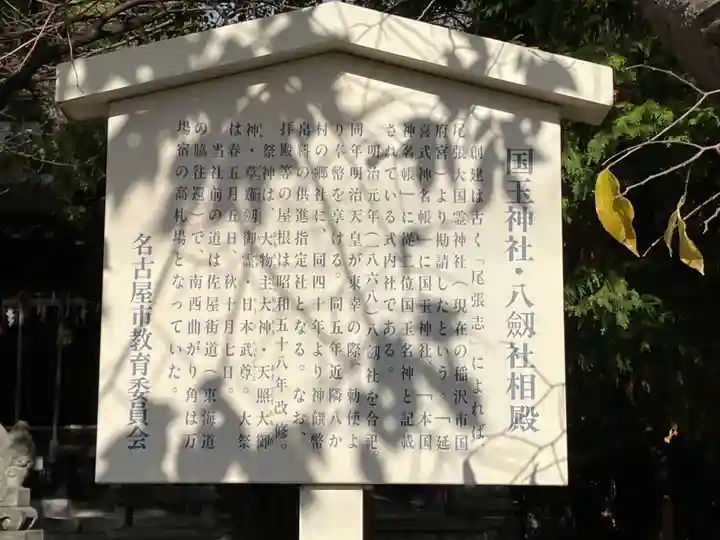 国玉神社・八劔社相殿
創建は古く「尾張志」によれば、
尾張大国霊神社（現在の稲沢市国
府宮）より勘請したという。「延
喜式神名帳」に国玉神社、「本国
神名帳」に従二位国玉名神と記載
されている式内社である。
明治元年（一八六八）八劔社を合祀。
同年明治天皇が東幸の際、勅使よ
り奉幣を享ける。同五年近隣八か
村の郷社に、同四十年より神饌幣
帛料の供進指定社となる。なお、
拝殿等の屋根は昭和五十八年改修。
祭神は、大物主大神・天照大御
神・草薙劔御霊・日本武尊。大祭
は春五月五日、秋十月七日。
当社前の道は佐屋街道（東海道
の脇往還）で、南西曲がり角は万
場宿の高札場となっていた。
名古屋市教育委員会